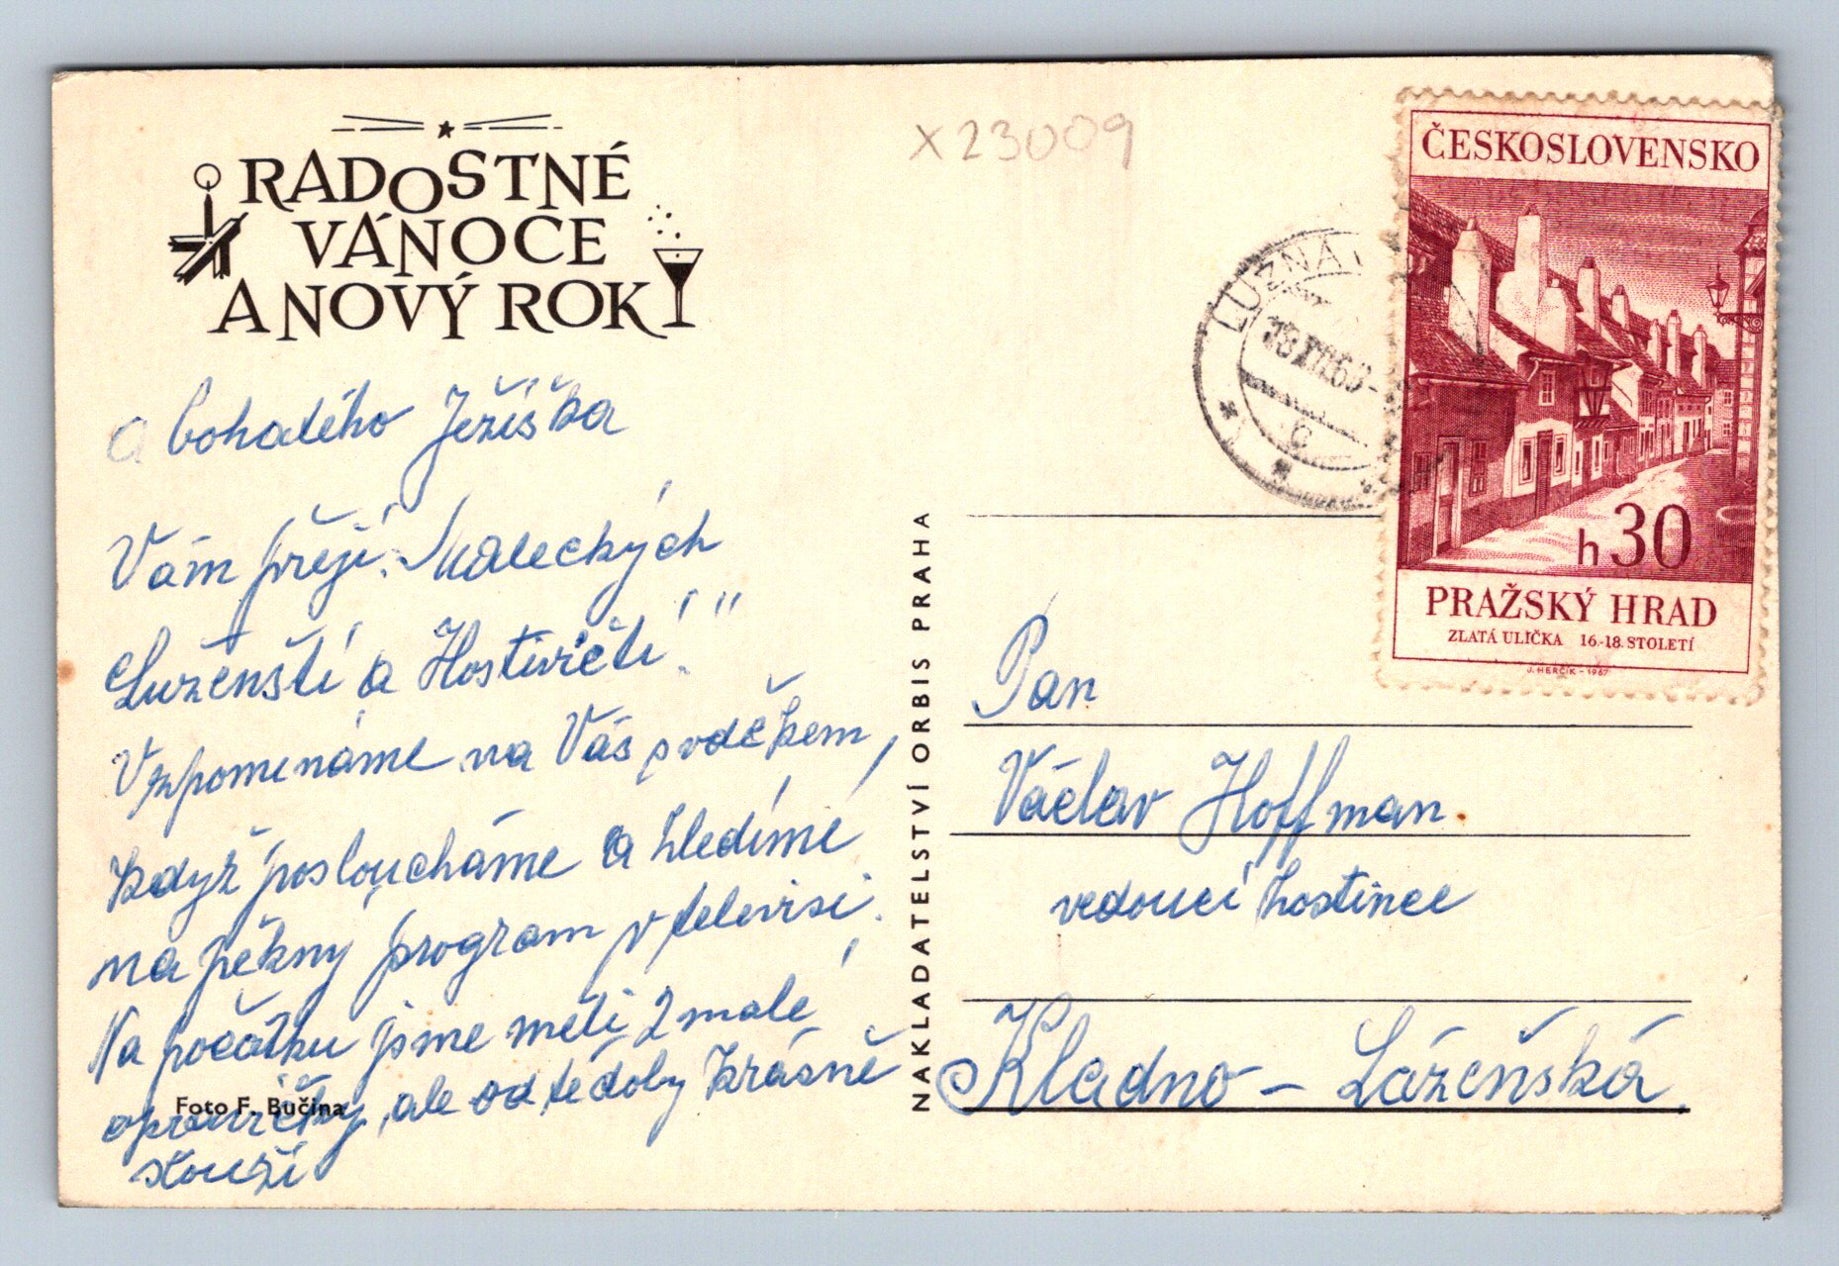 RADOSTNÉ
VÁNOCE
A NOVÝ ROK
a bohatého Ježíška
Vám přejí: Maleckých
Luženští a Hostivičtí."
Vzpomenáme na Vás s vděkem,
když posloucháme a hledíme
na pěkny program v televisi.
Na počátku jsme měli 2 malé
opravičky, ale od té doby krásně
slouží
Foto F. Bučina
NAKLADATELSTVÍ ORBIS PRAHA
X23009
LUŽNÁ
18.XII.6
c
ČESKOSLOVENSKO
h 30
PRAŽSKÝ HRAD
ZLATÁ ULIČKA 16.-18. STOLETÍ
J. HERČÍK - 1967
Pan
Václav Hoffman
vedoucí hostince
Kladno - Lázeňská.